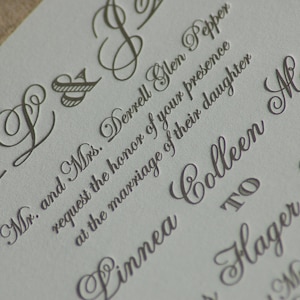 L & J
Mr. and Mrs. Derrell Glen Pepper
request the honor of your presence
at the marriage of their daughter
Linnea Colleen M
TO
s Hager